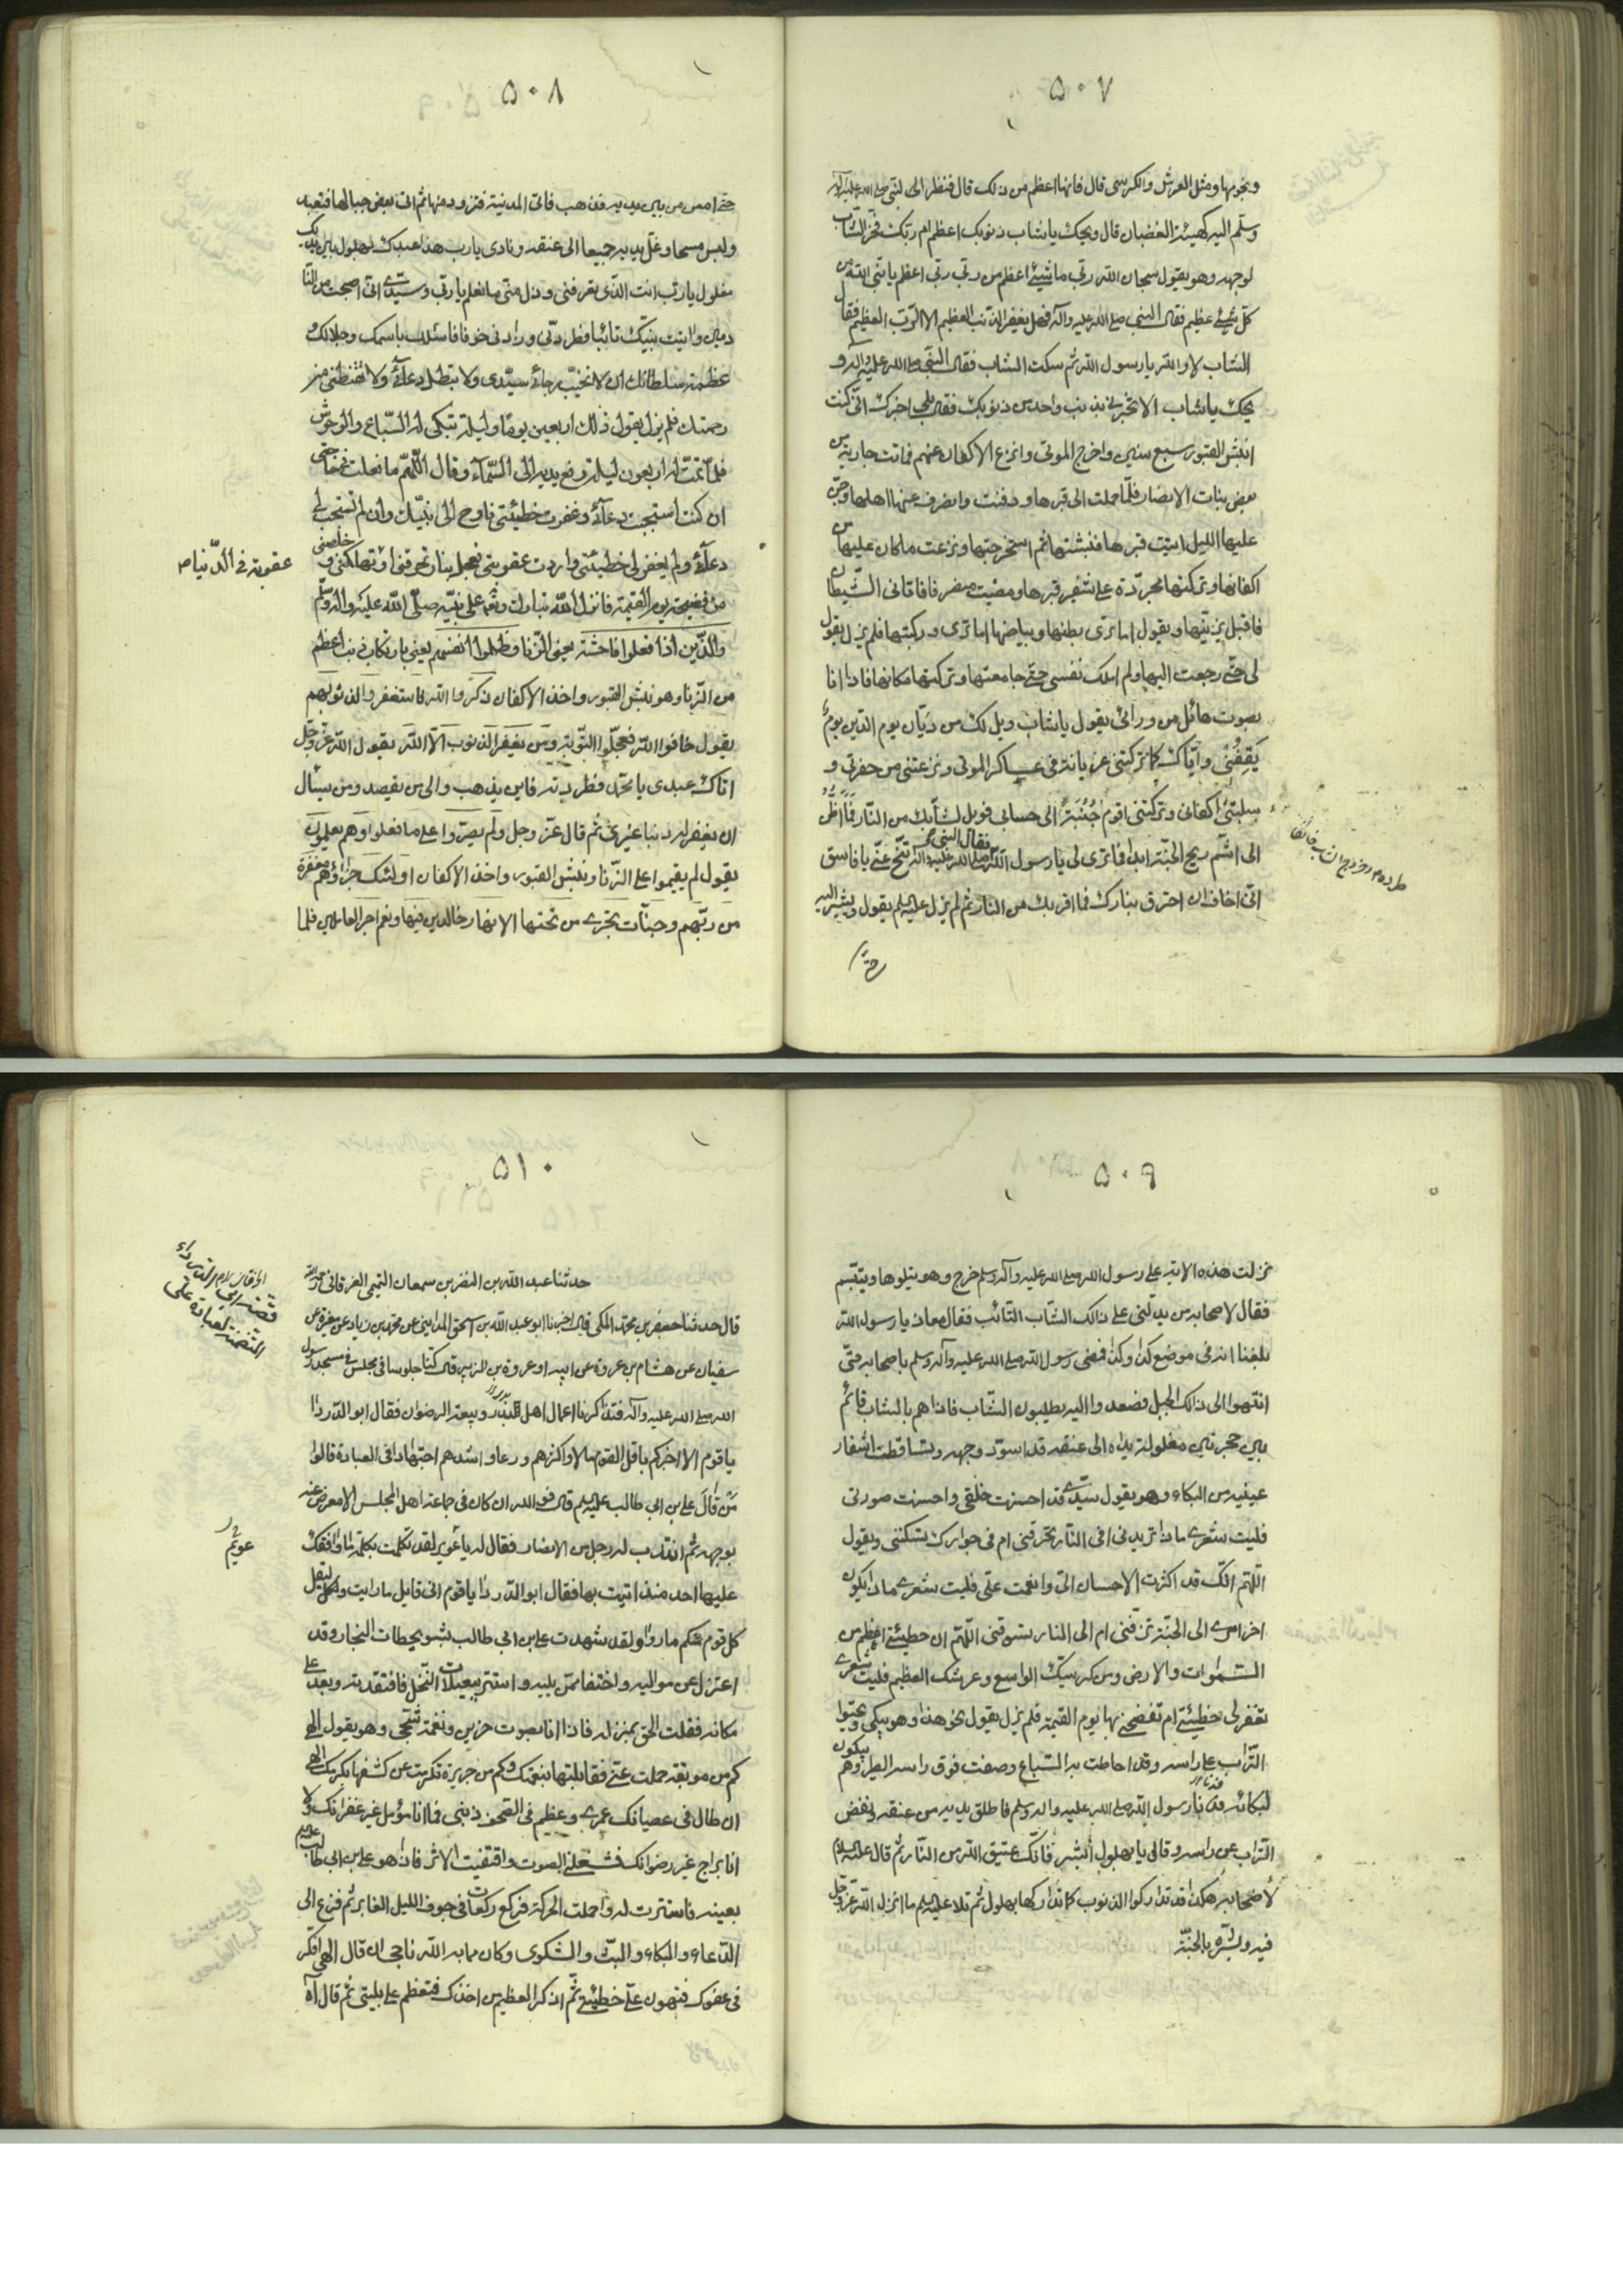 ٥٠٧
ونجومها ومثل العرش والكرسى قال فانها اعظم من ذلك قال فنظر الى النبى صلى الله عليه وآله
وسلّم اليه كهيئة الغضبان قال ويحك يا شاب ذنوبك اعظم ام ربّك فخرّ الشّاب
لوجهه وهو يقول سبحان الله ربّى ما شيئ اعظم من ربّى ربّى اعظم يا نبّى الله من
كلّ شيئ عظيم فقال النبى صلى الله عليه وآله فهل يغفر الذّنب العظيم الا الرّبّ العظيم فقال
الشاب لا والله يا رسول الله ثم سكت الشاب فقال النبّى صلى الله عليه وآله و
يحك يا شاب الا تخبرنى بذنب واحد من ذنوبك فقال بلى اخبرك انّى كنت
انبش القبور سبع سنين واخرج الموتى وانزع الاكفان عنهم فماتت جارية من
بعض بنات الانصار فلمّا حملت الى قبرها ودفنت وانصرف عنها اهلها وجنّ
عليها الليل اتيت قبرها فنبشتها ثم استخرجتها ونزعت ما كان عليها من
اكفانها وتركتها مجرّدة على شفير قبرها ومضيت منصرفا فاتانى الشّيطان
فاقبل يزينّها ويقول اما ترى بطنها وبياضها اما ترى وركيها فلم يزل يقول
لى حتّى رجعت اليها ولم املك نفسى حتّى جامعتها وتركتها مكانها فاذا انا
بصوت هائل من ورائى يقول يا شاب ويل لك من ديّان يوم الدّين يوم
يَقِفُنى وايّاك كما تركتنى عريانة فى عساكر الموتى ونزعتنى من حفرتى و
سلبتنى اكفانى وتركتنى اقوم جُنُبَةً الى حسابى فويل لشبابك من النّار فَمَا اظُنُّ
فقال النبى
الى اشمّ ريح الجنّة ابدا فما ترى لى يا رسول الله صلى الله عليه وآله تنحّ عنّى يا فاسق
انّى اخاف ان احترق بنارك فما اقربك من النار ثم لم يزل عليه السلم يقول ويشير اليه
حتّى
٥٠٨
حتى امعن من بين يديه فذهب فاتى المدينة فتزود منها ثم اتى بعض جبالها فتعبد
ولبس مسحا وغلّ يديه جميعا الى عنقه ونادى يا رب هذا عبدك بهلول بين يديك
مغلول يا ربّ انت الذّى تعرفنى وزل منّى ما تعلم يا ربّ وسيّدى انّى اصبحت من النّا
دمين واتيت نبيّك تائبا فطردنى وزادنى خوفا فاسئلك باسمك وجلالك و
عظمة سلطانك ان لا تخيّب رجائى سيّدى ولا تبطل دعائى ولا تقنطنى من
رحمتك فلم يزل يقول ذلك اربعين يومًا وليلة تبكى له السّباع والوحوش
فلمّا تمّت له اربعون ليلة رفع يديه الى السّماء وقال اللّهمّ ما فعلت فى حاجتى
ان كنت استجبت دعائى وغفرت خطيئتى فاوح الى نبيّك وان لم تستجب لى
دعائى ولم يغفر لى خطيئتى واردت عقوبتى فعجل بنار تحرقنى او تهلكنى و خلّصنى
عقوبة فى الدّنيا ص
من فضيحة يوم القيمة فانزل اللّه تبارك وتعالى على نبيّه صلّى اللّه عليه واله وسلّم
والّذين اذا فعلوا فاحشة يعنى الزّنا وظلموا انفسهم يعنى بارتكاب ذنب اعظم
من الزّنا وهو نبش القبور واخذ الاكفان ذكروا الله فاستغفروا لذنوبهم
يقول خافوا الله فعجّلوا التوبة ومن يغفر الذنوب الّا الله يقول الله عزّ وجلّ
اتاك عبدى يا محمّد فطردته فاين يذهب والى من يقصد ومن يسأل
ان يغفر له ذنبا غيرى ثم قال عزّ وجل ولم يصرّوا على ما فعلوا وهم يعلمون
يقول لم يقيموا على الزّنا ونبش القبور واخذ الاكفان اولئك جزاؤهم مغفرة
من ربّهم وجنّات تجرى من تحتها الانهار خالدين فيها ونعم اجر العاملين فلما
٥٠٩
نزلت هذه الاية على رسول الله صلى الله عليه وآله وسلم خرج وهو يتلوها ويتبّسم
فقال لاصحابه من يدلّنى على ذالك الشّاب التّائب فقال معاذ يا رسول الله
بلغنا انه فى موضع كذا وكذا فمضى رسول الله صلى الله عليه وآله وسلم باصحابه حتّى
انتهوا الى ذالك الجبل فصعدوا اليه يطلبون الشّاب فاذاهم بالشاب قائم
بين حجرتين مغلولة يداه الى عنقه قد اسوّد وجهه وتساقطت اشفار
عينيه من البكاء وهو يقول سيّدى قد احسنت خلقى واحسنت صورتى
فليت شعرى ماذا تريد فى افى النّار تحرقنى ام فى جوارك تسكننى ويقول
اللّهم انّك قد اكثرت الاحسان الىّ وانعمت علّى فليت شعرى ماذا يكون
اخر امرى الى الجنّة تزّفنى ام الى النار تسوقنى اللّهم ان خطيئتى اعظم من
السّموات والارض ومن كرسيّك الواسع وعرشك العظيم فليت شعرى
تغفر لى خطيئتى ام تفضحنى بها يوم القيمة فلم يزل يقول نحو هذا وهو يبكى ويحثوا
التّراب على راسه وقد احاطت به السّباع وصفت فوق راسه الطير وهم يبكون
لبكائه فدنا رسول الله صلى الله عليه واله وسلم فاطلق يديه من عنقه ونفض
التّراب عن راسه وقال يا بهلول ابشر فانّك عتيق الله من النّار ثم قال عليه السلام
لاصحابه هكذا تداركوا الذنوب كما تداركها بهلول ثم تلا عليه السلم ما انزل الله عزّ وجلّ
فيه وبشّره بالجنّة
٥١٠
حدثنا عبد الله بن النضر بن سمعان التميمى الخرقانى رحمه الله
قال حدثنا جعفر بن محمّد المكى قال اخبرنا ابو عبد الله بن اسحق المداينى عن محمّد بن زياد عن مغيرة عن
سفيان عن هشام بن عروة عن ابيه او عروة بن الزبير قال كنا جلوسا فى مجلس فى مسجد رسول
الله صلى الله عليه وآله فتذاكرنا اعمال اهل بدر وبيعة الرضوان فقال ابو الدّرداء
يا قوم الا اخبركم باقل القوم مالا واكثرهم ورعا واشدهم اجتهادا فى العبادة قالوا
مَنْ قَالَ على بن ابى طالب عليه السلم قال فو الله ان كان فى جماعة اهل المجلس الا معرض عنه
بوجهه ثم انتدب له رجل من الانصار فقال له يا عويمر لقد تكلمت بكلمة ما وافقك
عويمر
عليها احد منذ اتيت بها فقال ابو الدّرداء يا قوم انى قايل ما رايت وليقل
كل قوم منكم ما راوا ولقد شهدت على بن ابى طالب بشويحطات النجار وقد
اعتزل عن مواليه واختفا ممّن يليه واستتر ببعيلات النّخل فافتقدته وبعد علىّ
مكانه فقلت الحق بمنزله فاذا انا بصوت حزين ونغمة شجى وهو يقول الهى
كم من موبقة حملت عنّى فقابلتها بنعمتك وكم من جريرة تكرمت عن كشفها بكرمك الهى
ان طال فى عصيانك عمرى وعظم فى الصّحف ذنبى فما انا مؤمل غير غفرانك ولا
انا براج غير رضوانك فشغلنى الصوت واقتفيت الاثر فاذا هو على بن ابى طالب عليه السلم
بعينه فاستترت له واخملت الحركة فركع ركعات فى جوف الليل الغابر ثم فزع الى
الدّعاء والبكاء والبثّ والشكوى وكان مما به الله ناجى ان قال الهى افكر
فى عفوك فتهون علىّ خطيئتى ثّم اذكر العظيم من اخذك فتعظم على بليتى ثم قال آه